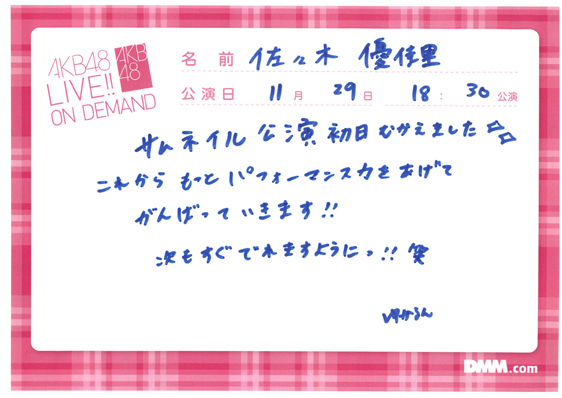 AKB48
LIVE!!
ON DEMAND
AKB
48
名前 佐々木 優佳里
公演日 11月 29日 18:30公演
サムネイル公演初日むかえました
これから もっと パフォーマンス力をあげて
がんばっていきます!!
次もすぐでれますようにっ!! 笑
ゆかるん
DMM.com